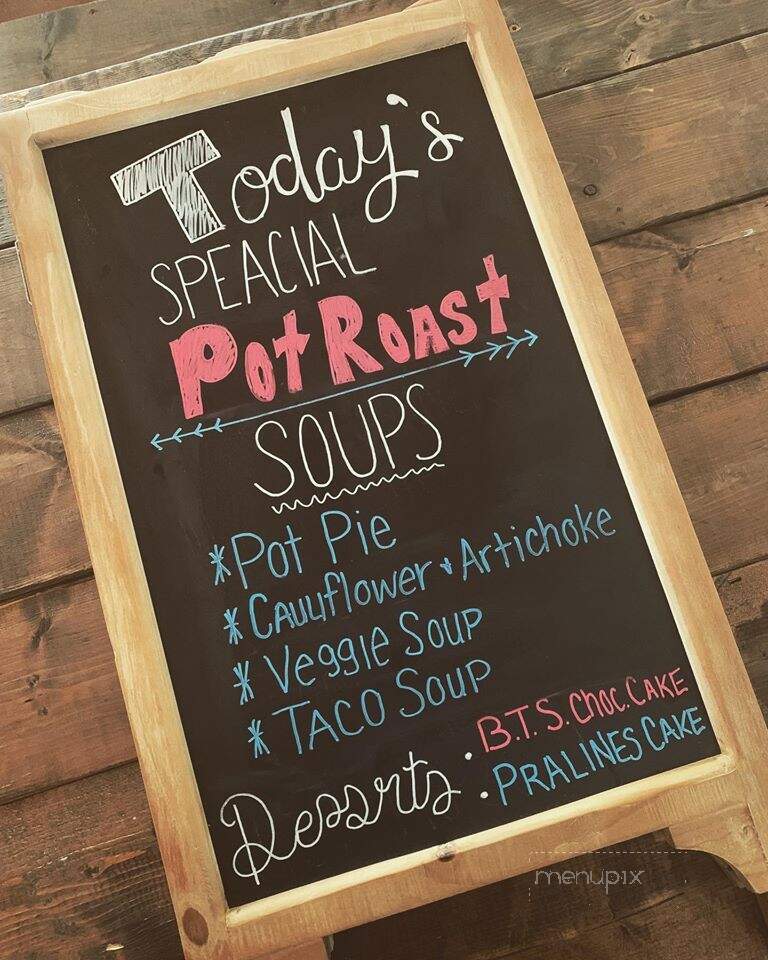 Today's
SPEACIAL
Pot Roast
SOUPS
*Pot Pie
*Cauuflower & Artichoke
*Veggie Soup
*TACO SOUP
Desserts
• B.T.S. Choc. CAKE
• PRALINES CAKE
menupix